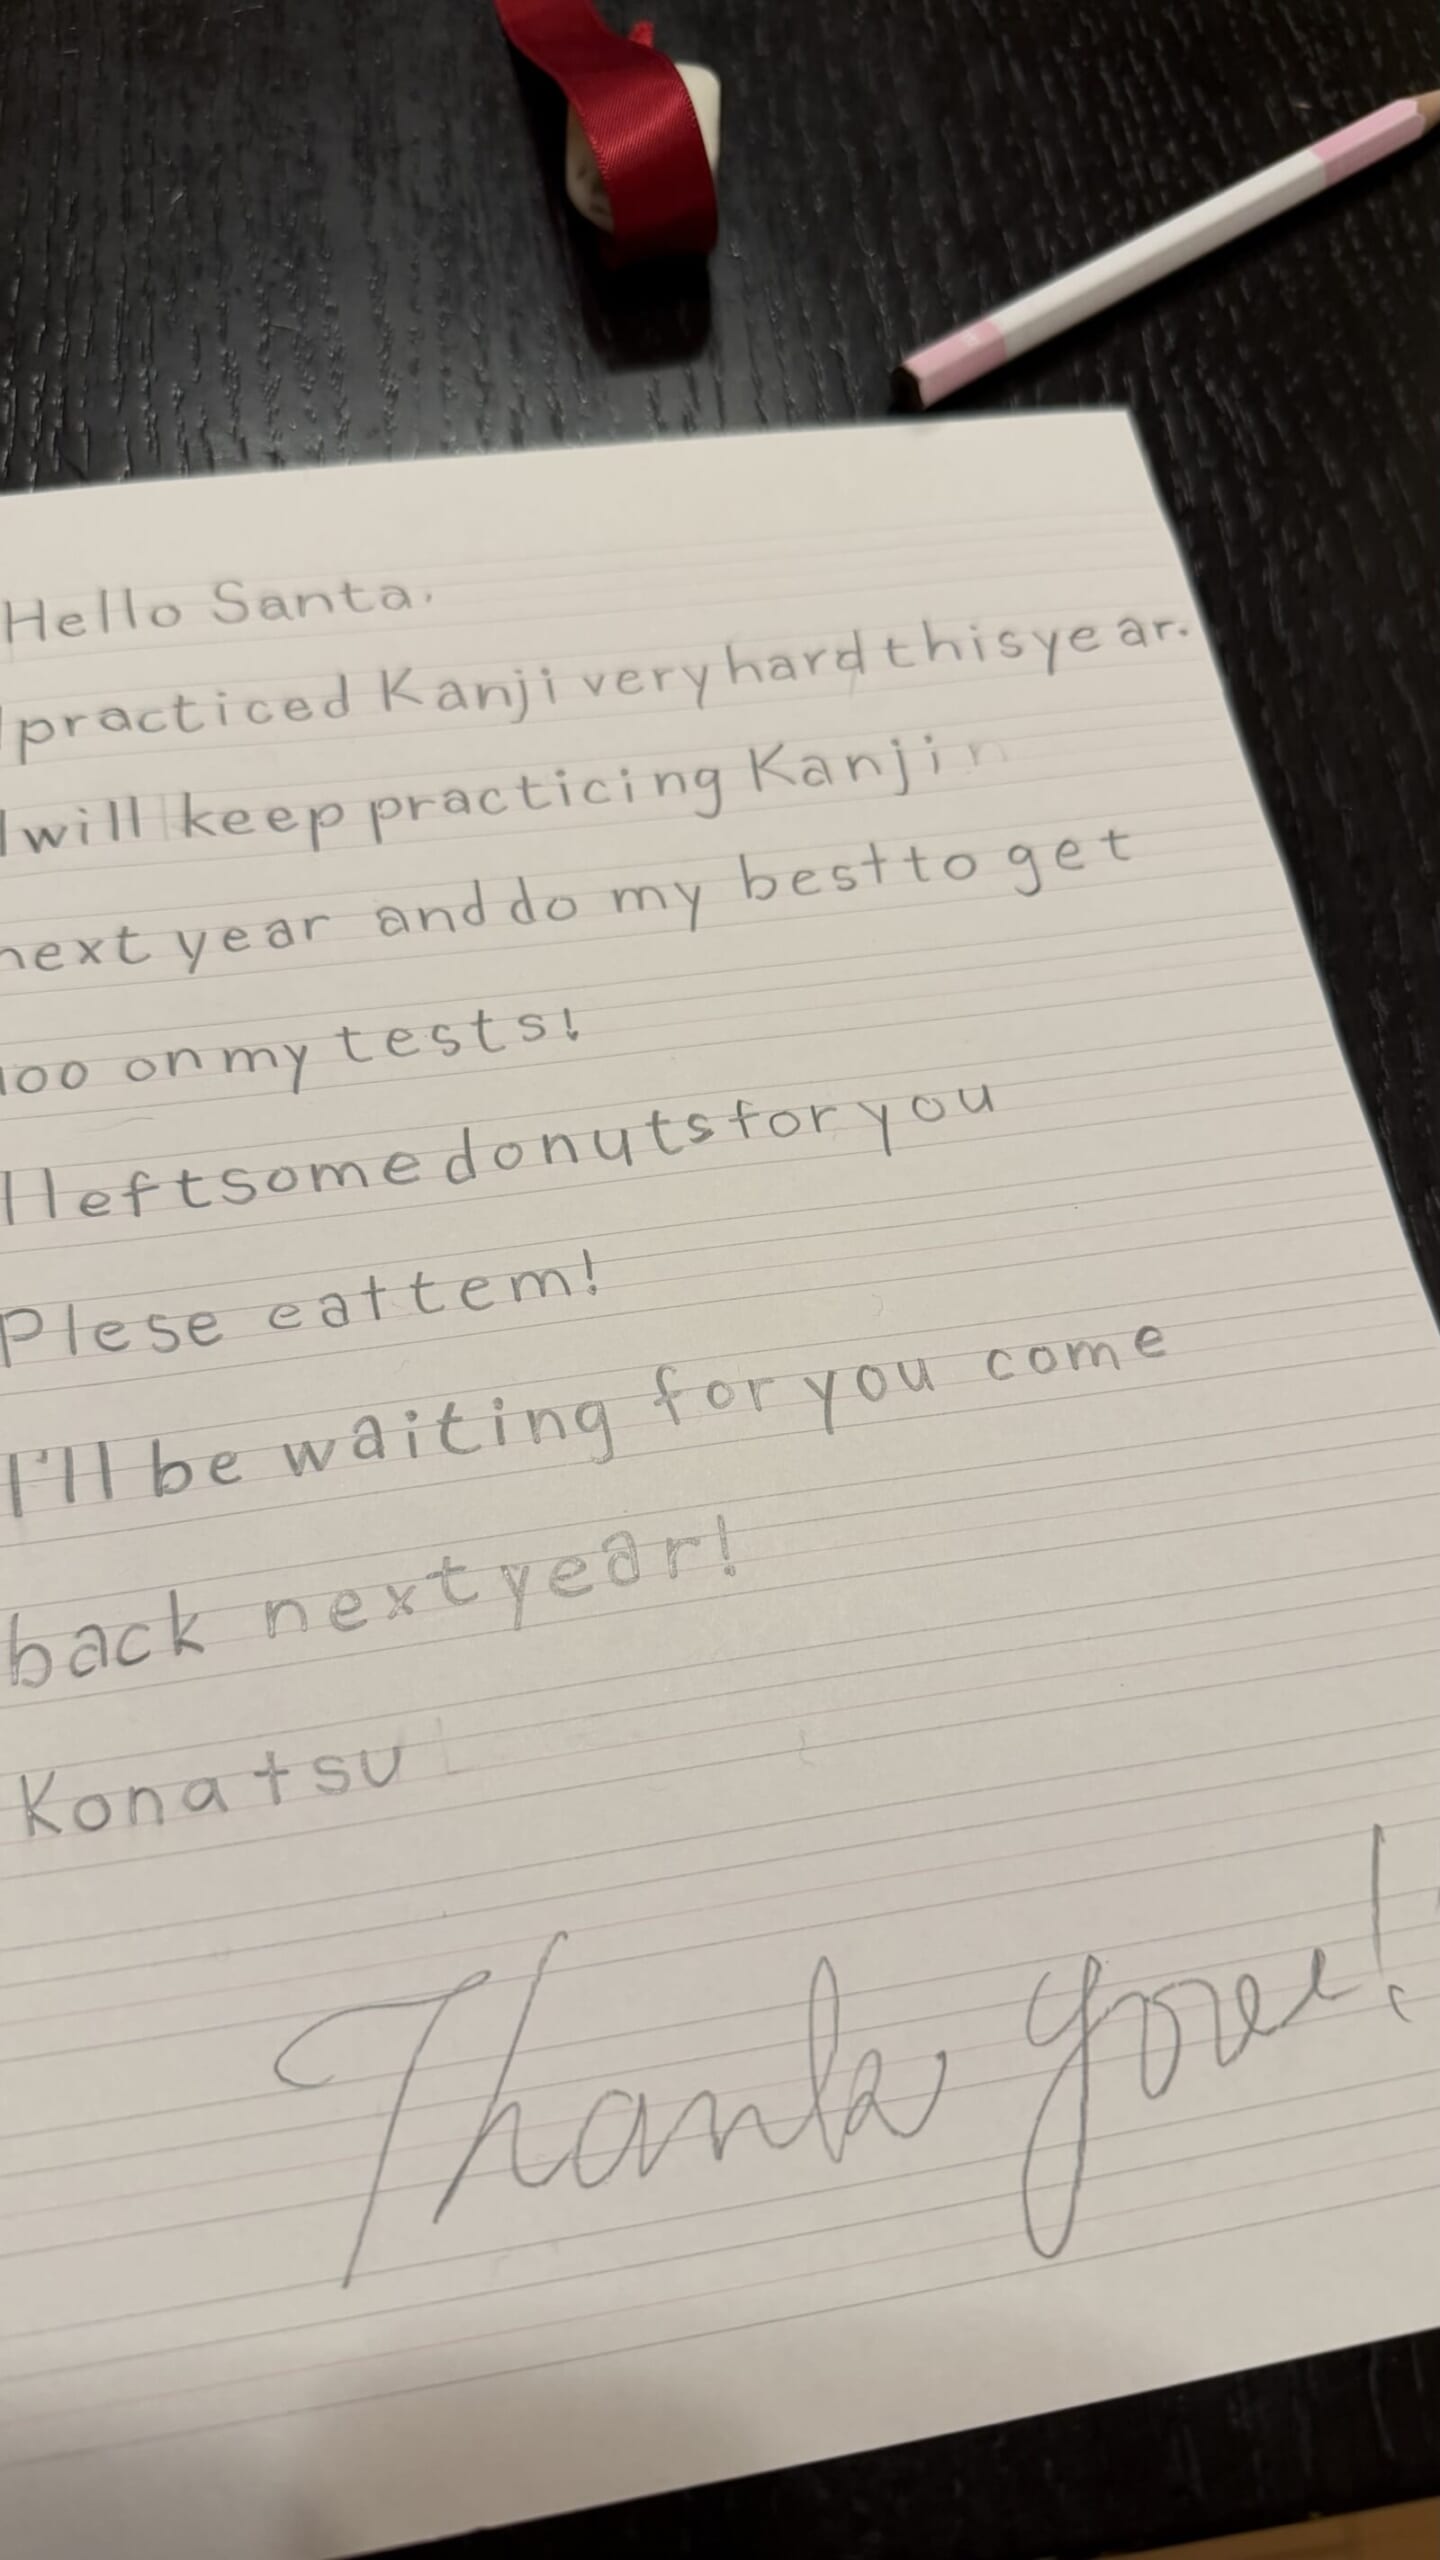 Hello Santa.
I practiced Kanji very hard this year.
I will keep practicing Kanji
next year and do my best to get
100 on my tests!
I left some donuts for you
Plese eat tem!
I'll be waiting for you come
back next year!
Konatsu
Thank you!